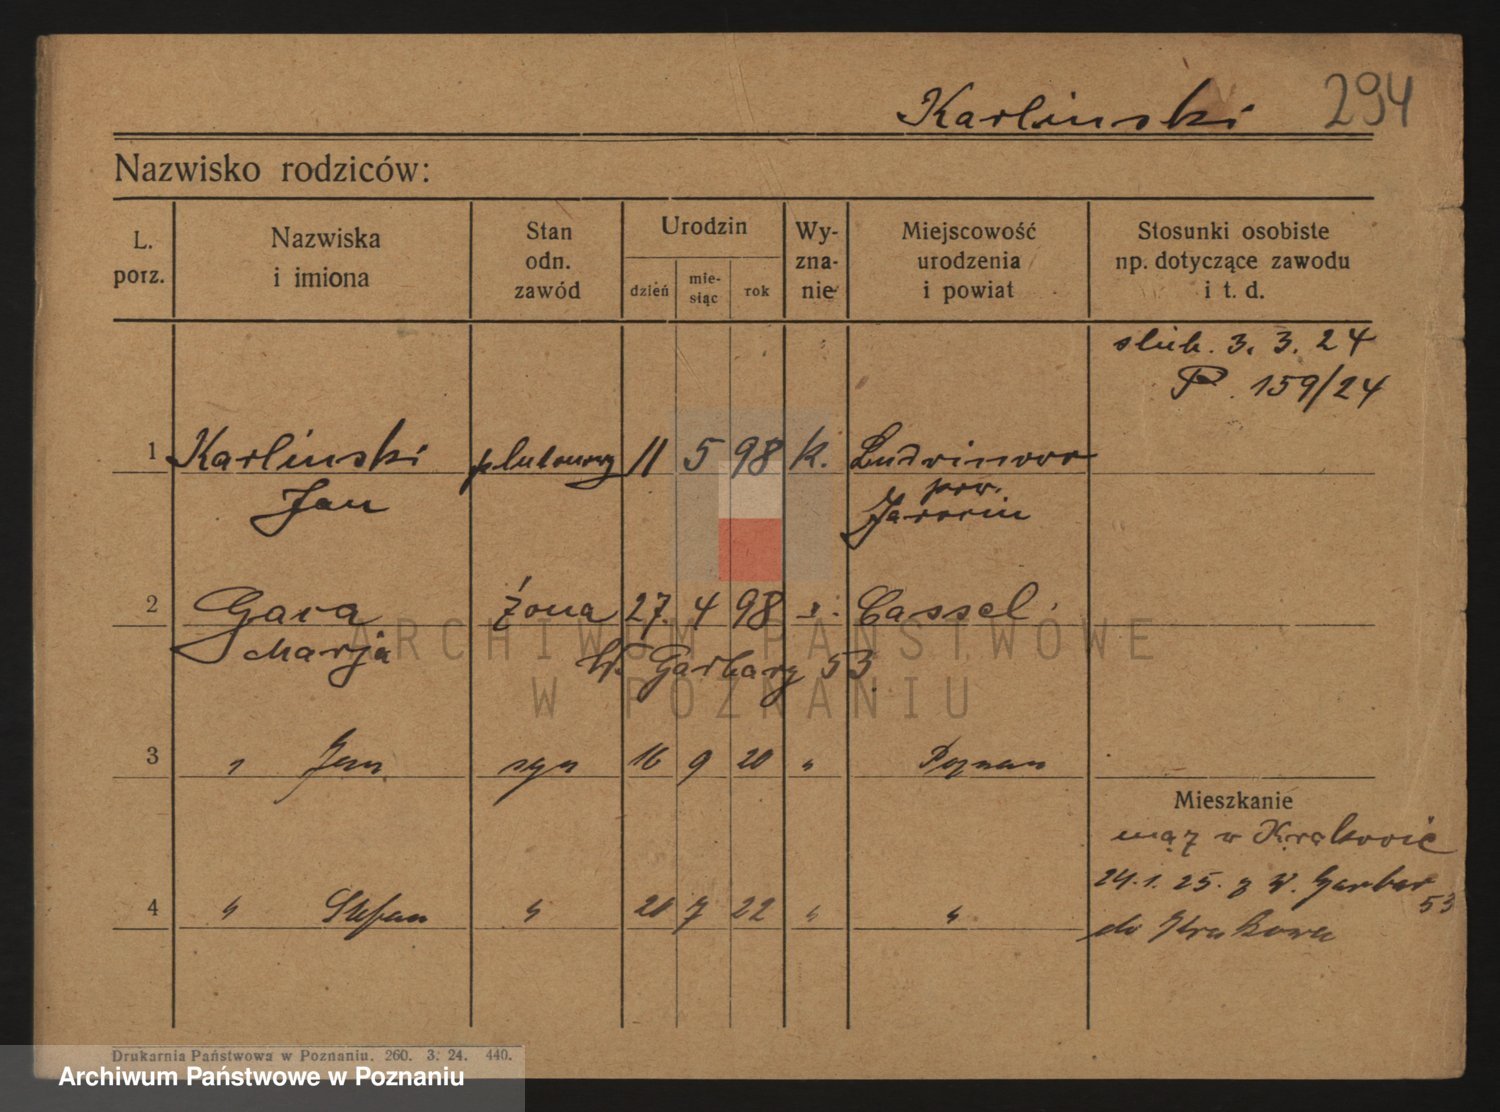 Karlinski 294
Nazwisko rodziców:
L. porz.
Nazwiska i imiona
Stan odn. zawód
Urodzin
dzień
mie- siąc
rok
Wy- zna- nie
Miejscowość urodzenia i powiat
Stosunki osobiste np. dotyczące zawodu i t. d.
slub. 3. 3. 24
P. 159/24
1 Karlinski plutonowy 11 5 98 k.
Jan pow. Jarocin
2 Gara Żona 27. 4 98 " Cassel.
Marja W. Garbary 53
3 " Jan syn 16 9 20 " Poznan
Mieszkanie
mąz w Krakowie
24. 1. 25. z W. Garbar 53
do Krakowa
4 " Stefan " 20 7 22 " "
Drukarnia Państwowa w Poznaniu. 260. 3. 24. 440.
ARCHIWUM PAŃSTWOWE
W POZNANIU
Archiwum Państwowe w Poznaniu